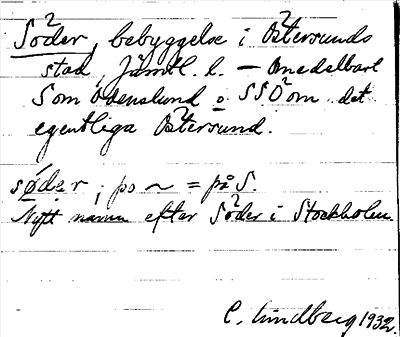 Söder, bebyggelse i Östersunds
stad, Jämtl. l. – Omedelbart
S om Odenslund o SSO om det
egentliga Östersund.
sǿde̱r; po ~ = på S.
Nytt namn efter Söder i Stockholm.
C. Lindberg 1932.